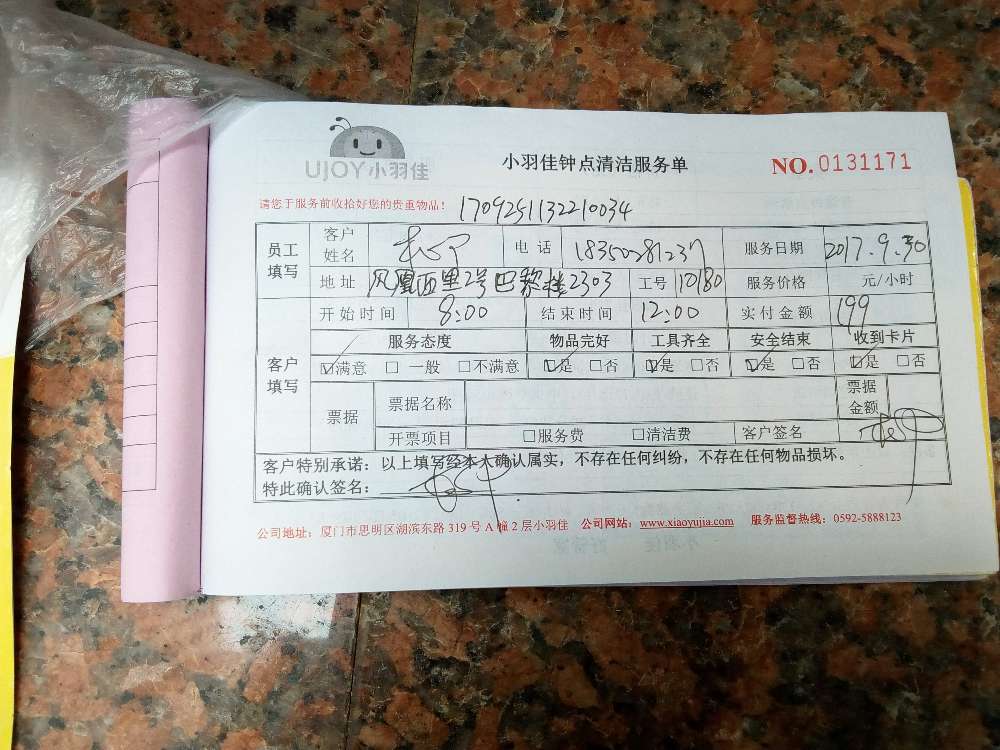 UJOY小羽佳
小羽佳钟点清洁服务单
NO.0131171
请您于服务前收拾好您的贵重物品！
1709251132210034
员工填写 客户姓名 电话 服务日期 2017.9.30
地址 凤凰西里2号巴黎楼2303 工号 10180 服务价格 元/小时
开始时间 8:00 结束时间 12:00 实付金额 199
客户填写 服务态度 物品完好 工具齐全 安全结束 收到卡片
☑满意 □一般 □不满意 ☑是 □否 ☑是 □否 ☑是 □否 ☑是 □否
票据 票据名称 票据金额
开票项目 □服务费 □清洁费 客户签名
客户特别承诺：以上填写经本人确认属实，不存在任何纠纷，不存在任何物品损坏。
特此确认签名：
公司地址：厦门市思明区湖滨东路 319 号 A 幢 2 层小羽佳 公司网站：www.xiaoyujia.com 服务监督热线：0592-5888123